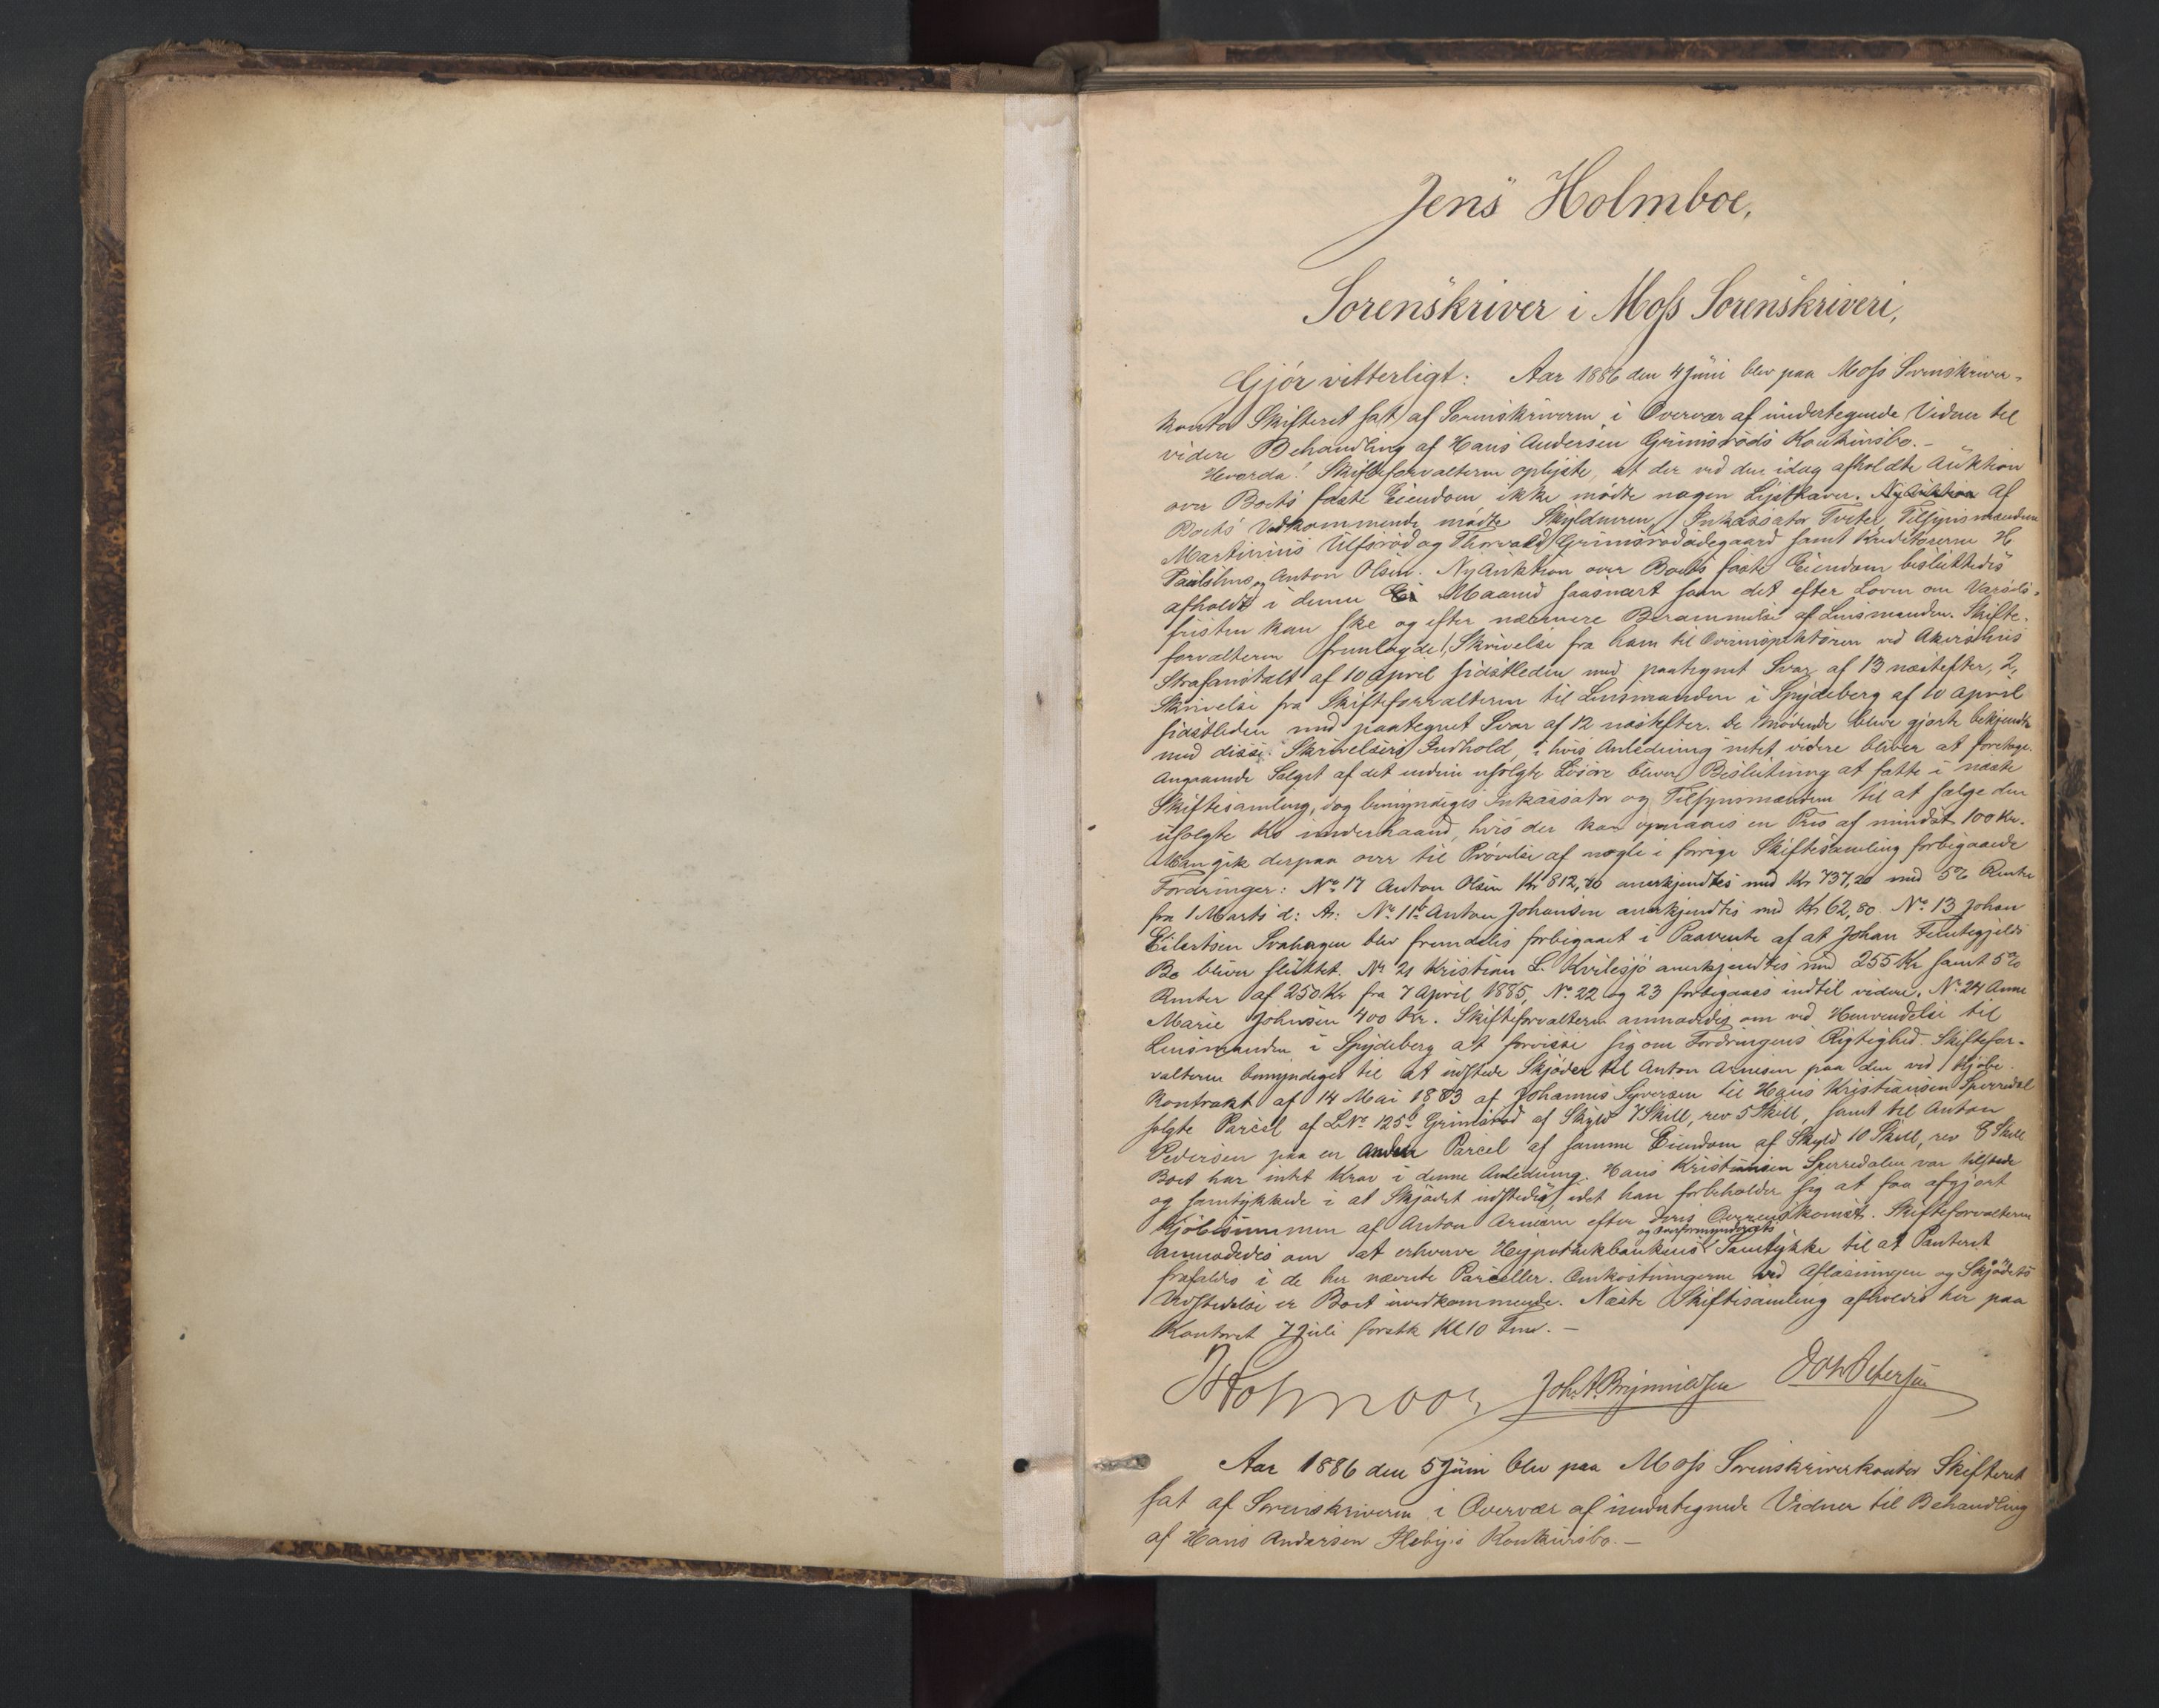 Jens Holmboe,
Sorenskriver i Moss Sorenskriveri,
Gjör vitterligt: Aar 1886 den 4 Juni blev paa Moss Sorenskriver-
kontor Skifteret sat af Sorenskriveren i Overvær af undertegnede Vidner til
videre Behandling af Hans Andersen Grimsröds Konkursbo.-
Hvorda! Skifteforvalteren oplyste, at der ved den idag afholdte Auktion
over Boets faste Eiendom ikke mödte nogen Lysthaver. Ny Auktion Af
Boets Vedkommende mödte Skyldneren, Inkassator Tveter, Tilsynsmændene
Martinius Ulfsröd og Thorvald Grimsrödödegaard samt Kreditorerne H
Paulshus og Anton Olsen. Ny Auktion over Boets faste Eiendom besluttedes
afholdt i denne Ei Maaned saasnart som det efter Loven om Varsels-
fristen kan ske og efter nærmere Berammelse af Lensmanden. Skifte-
forvalteren fremlagde 1, Skrivelse fra ham til Overinspektören ved Akershus
Strafanstalt af 10 April sidstleden med paategnet Svar af 13 næstefter, 2,
Skrivelse fra Skifteforvalteren til Lensmanden i Spydeberg af 10 April
sidstleden med paategnet Svar af 12 næstefter. De Mödende bleve gjorte bekjendte
med disse Skrivelsers Indhold, i hvis Anledning intet videre bliver at foretage.
Angaaende Salget af det endnu usolgte Lösöre bliver Beslutning at fatte i næste
Skiftesamling, dog bemyndiges Inkassator og Tilsynsmændene til at sælge den
usolgte Ko underhaand, hvis der kan opnaaes en Pris af mindst 100 Kr.
Man gik derpaa over til Prövelse af nogle i forrige Skiftesamling forbigaaede
Fordringer: No 17 Anton Olsen Kr 812,70 anerkjendtes med Kr 737,20 med 5% Renter
fra 1 Marts d: A: No 11b Anton Johansen anerkjendtes med Kr 62,80 No 13 Johan
Eilertsen Svahagen blev fremdeles forbigaaet i Paavente af at Johan Feletegjelds
Bo bliver sluttet. No 21 Kristian L. Kvilesjö anerkjendtes med 255 Kr samt 5%
Renter af 250 Kr fra 7 April 1885, No 22 og 23 forbigaaes indtil videre. No 24 Anne
Marie Johnsen 400 Kr. Skifteforvalteren anmodedes om ved Henvendelse til
Lensmanden i Spydeberg at forvisse sig om Fordringens Rigtighed. Skiftefor-
valteren bemyndiges til at udstede Skjöder til Anton Arnesen paa den ved Kjöbe-
kontrakt af 14 Mai 1883 af Johannes Syversen til Hans Kristiansen Sperredal
solgte Parcel af LNo 125b Grimsröd af Skyld 7 Skill, rev 5 Skill, samt til Anton
Pedersen paa en anden Parcel af samme Eiendom af Skyld 10 Skill, rev 8 Skill
Boet har intet Krav i denne Anledning. Hans Kristiansen Sperredalen var tilstede
og samtykkede i at Skjödet udstedes, idet han forbeholder sig at faa afgjort
Kjöbesummen af Anton Arnesen efter deres Overenskomst. Skifteforvalteren
anmodedes om at erhverve Hypothekbankens og Overformynderiets Samtykke til at Panteret
frafaldes i de her nævnte Parceller. Omkostningerne ved Aflösningen og Skjödets
Udstedelse er Boet uvedkommende. Næste Skiftesamling afholdes her paa
Kontoret 7 Juli förstk Kl 10 Fmd. -
JHolmboe Joh.A.Brynnildsen Petersen
Aar 1886 den 5 Juni blev paa Moss Sorenskriverkontor Skifteret
sat af Sorenskriveren i Overvær af undertegnede Vidner til Behandling
af Hans Andersen Konkursbo.-